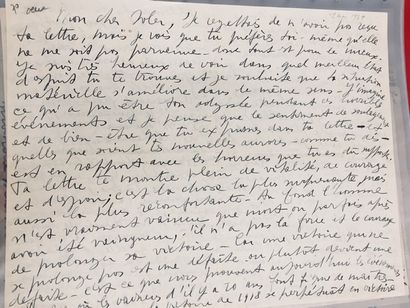 Mon cher Soler, Je regrettais de n'avoir pas reçu
ta lettre, mais je vois que tu préfères toi-même qu'elle
ne me soit pas parvenue - donc tout est pour le mieux.
Je suis très heureux de voir dans quel meilleur état
d'esprit tu te trouves et je souhaite que ta situation
matérielle s'améliore dans le même sens - J'imagine
ce qu'a pu être ton odyssée pendant ces horribles
événements et je pense que le sentiment de soulagement
et de bien-être que tu exprimes dans ta lettre -
quelles que soient tes nouvelles aurores - comme tu dis
est en rapport avec les horreurs que tu as
Ta lettre te montre plein de vitalité, de courage
et d'espoir; c'est la chose la plus surprenante mais
aussi la plus réconfortante - Au fond l'homme
n'est vraiment vaincu que mort ou parfois après
avoir été vainqueur; il n'a pas la force et le courage
de prolonger sa victoire - Car une victoire qui ne
se prolonge pas est une défaite ou plutôt devient une
défaite - C'est ce que nous prouvent aujourd'hui les
vaincus il y a 20 ans
victoire de 1918 se perpétuait en victoires